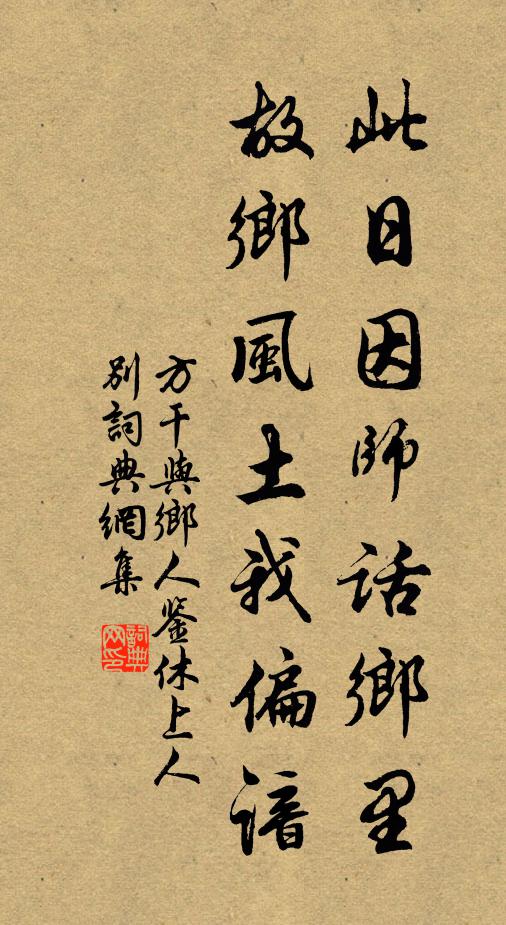 此日因師話鄉里
故鄉風土我偏諳
方干與鄉人鉴休上人
别詞典網集
詞典
网印